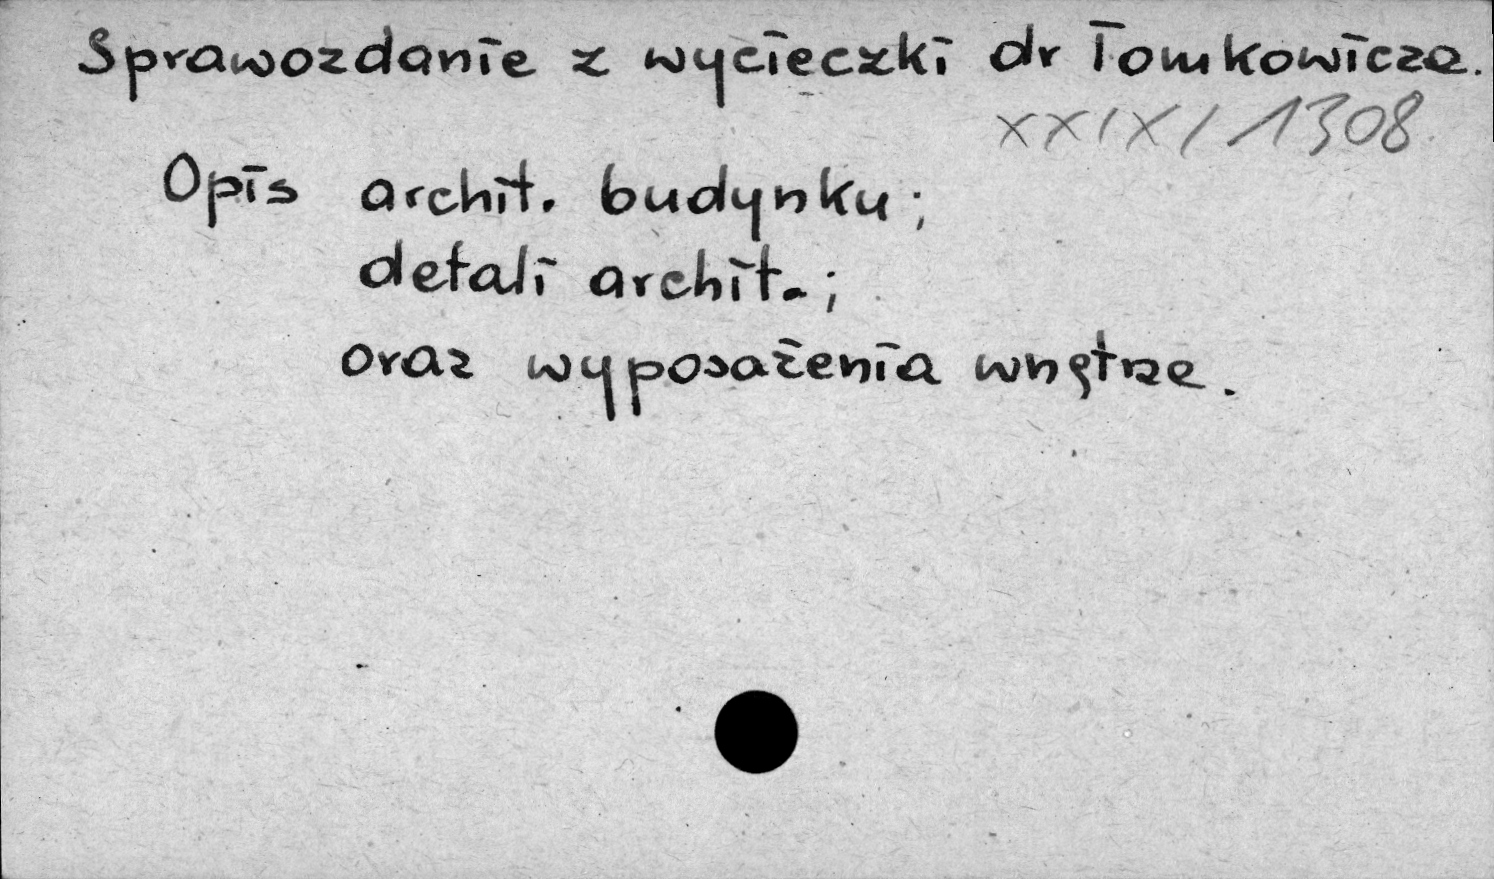 Sprawozdanie z wycieczki dr Tomkowicza.
XXIX/1308
Opis archit. budynku;
detali archit.;
oraz wyposażenia wnętrze.